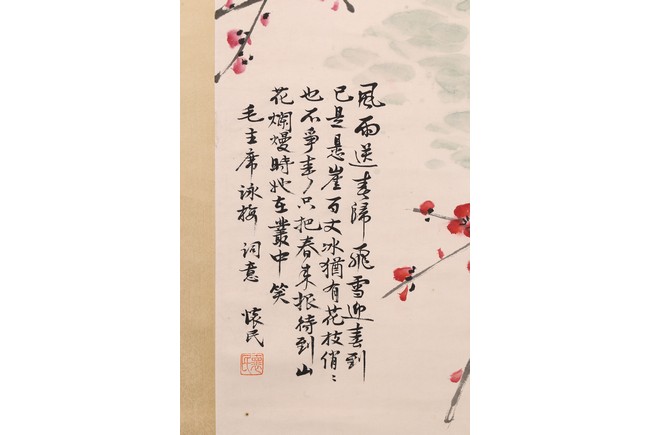 風雨送春歸飛雪迎春到
已是是崖百丈冰猶有花枝俏〻
也不爭春〻只把春来報待到山
花爛熳時她在叢中笑
毛主席詠梅詞意 懷民